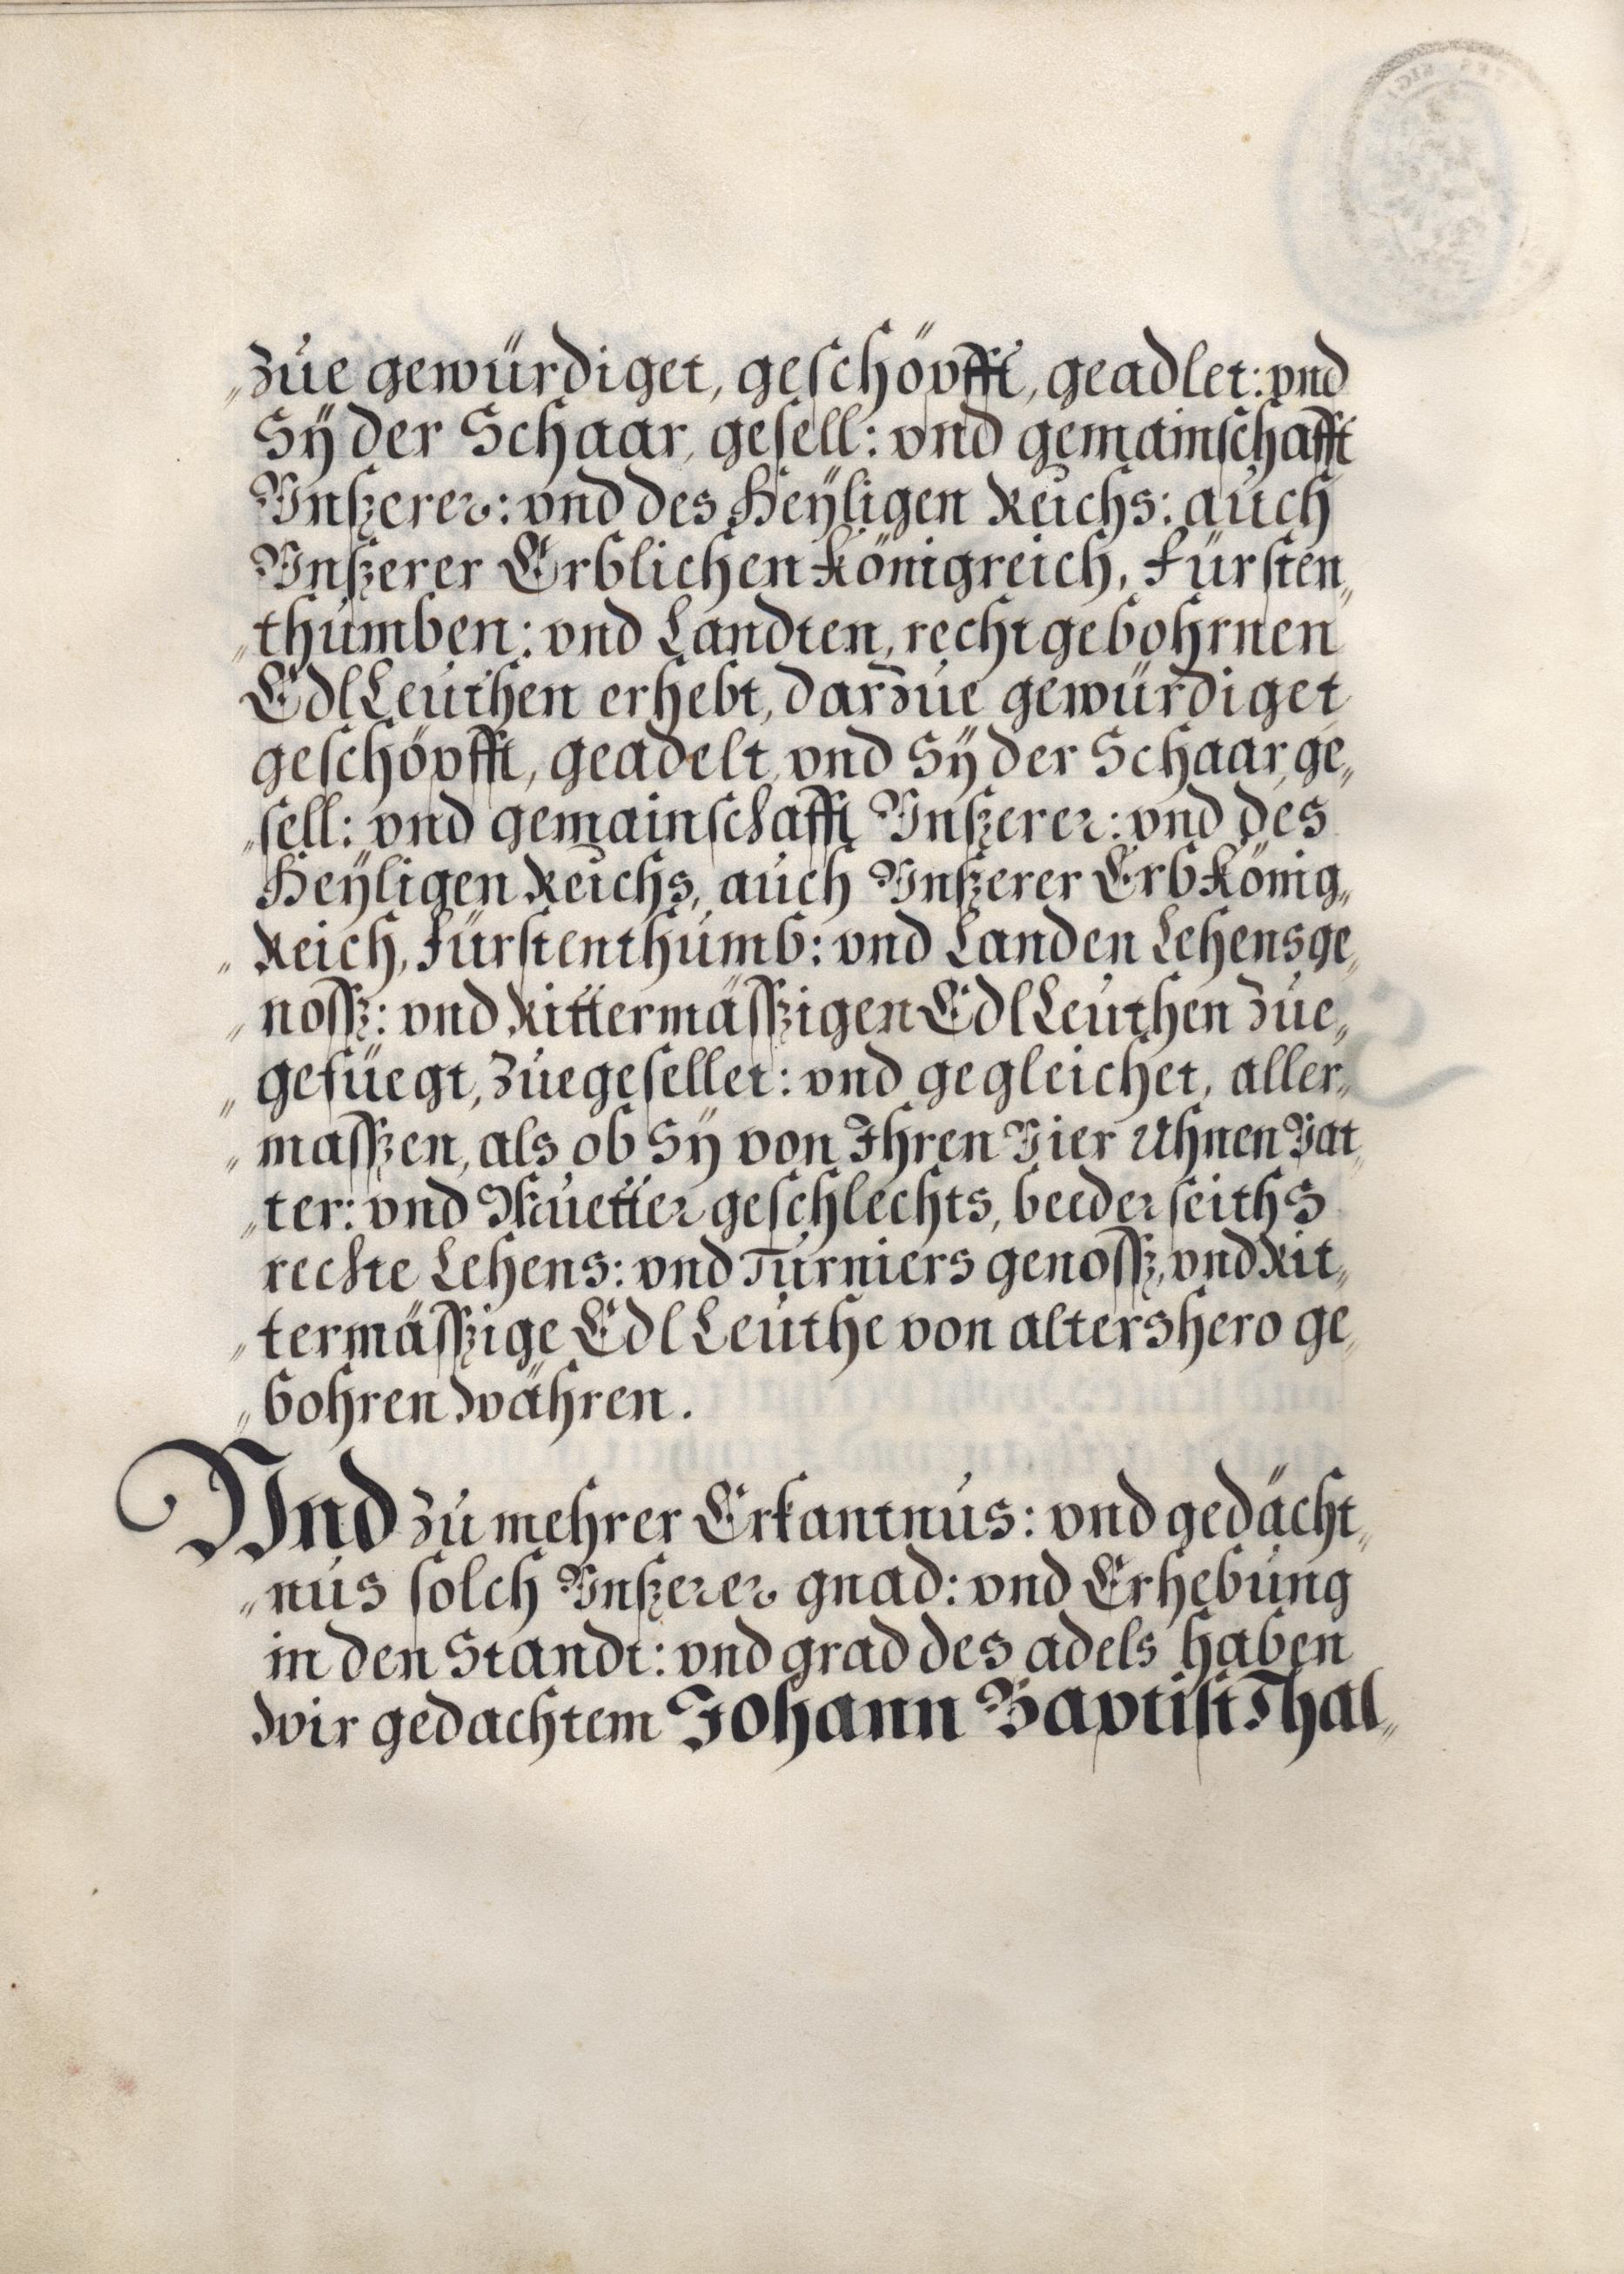 „Züe gewürdiget, geschöpfft, geadlet: vnd
Sÿ der Schaar, gesell: vnd gemainschafft
Vnßerer: vnd des Heÿligen Reichs: auch
Vnßerer Erblichen Königreich, Fürsten„
„thumben: vnd Landten, recht gebohrnen
Edl Leuthen erhebt, darzue gewürdiget
geschöpfft, geadelt, vnd Sÿ der Schaar, ge„
„sell: vnd gemainschafft Vnßerer: vnd des
Heÿligen Reichs, auch Vnßerer Erb König„
„Reich, Fürstenthumb: vnd Landen Lehensge„
„noß: vnd Rittermäßigen Edl Leuthen zue„
„gefüegt, zuegesellet: vnd gegleichet, aller„
„maßen, als ob Sÿ von Ihren Vier Uhnen Vat„
„ter: vnd Muetter geschlechts, beeder seiths
rechte Lehens: vnd Turniers genoß, vnd Rit„
„termäßige Edl Leuthe von altershero ge„
„bohren währen.
Vnd zu mehrer Erkantnus: vnd gedächt„
„nus solch Vnßerer gnad: vnd Erhebung
in den Standt: vnd grad des adels haben
wir gedachtem Johann Baptist Thal„